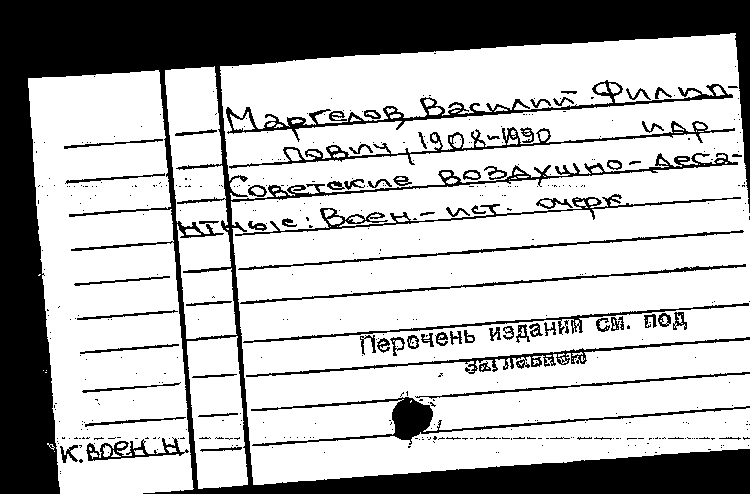 Маргелов, Василий Филип-
пович, 1908-1990 и др
Советские воздушно-деса-
нтные: Воен.-ист. очерк.
Перечень изданий см. под
заглавием
к.воен.н.